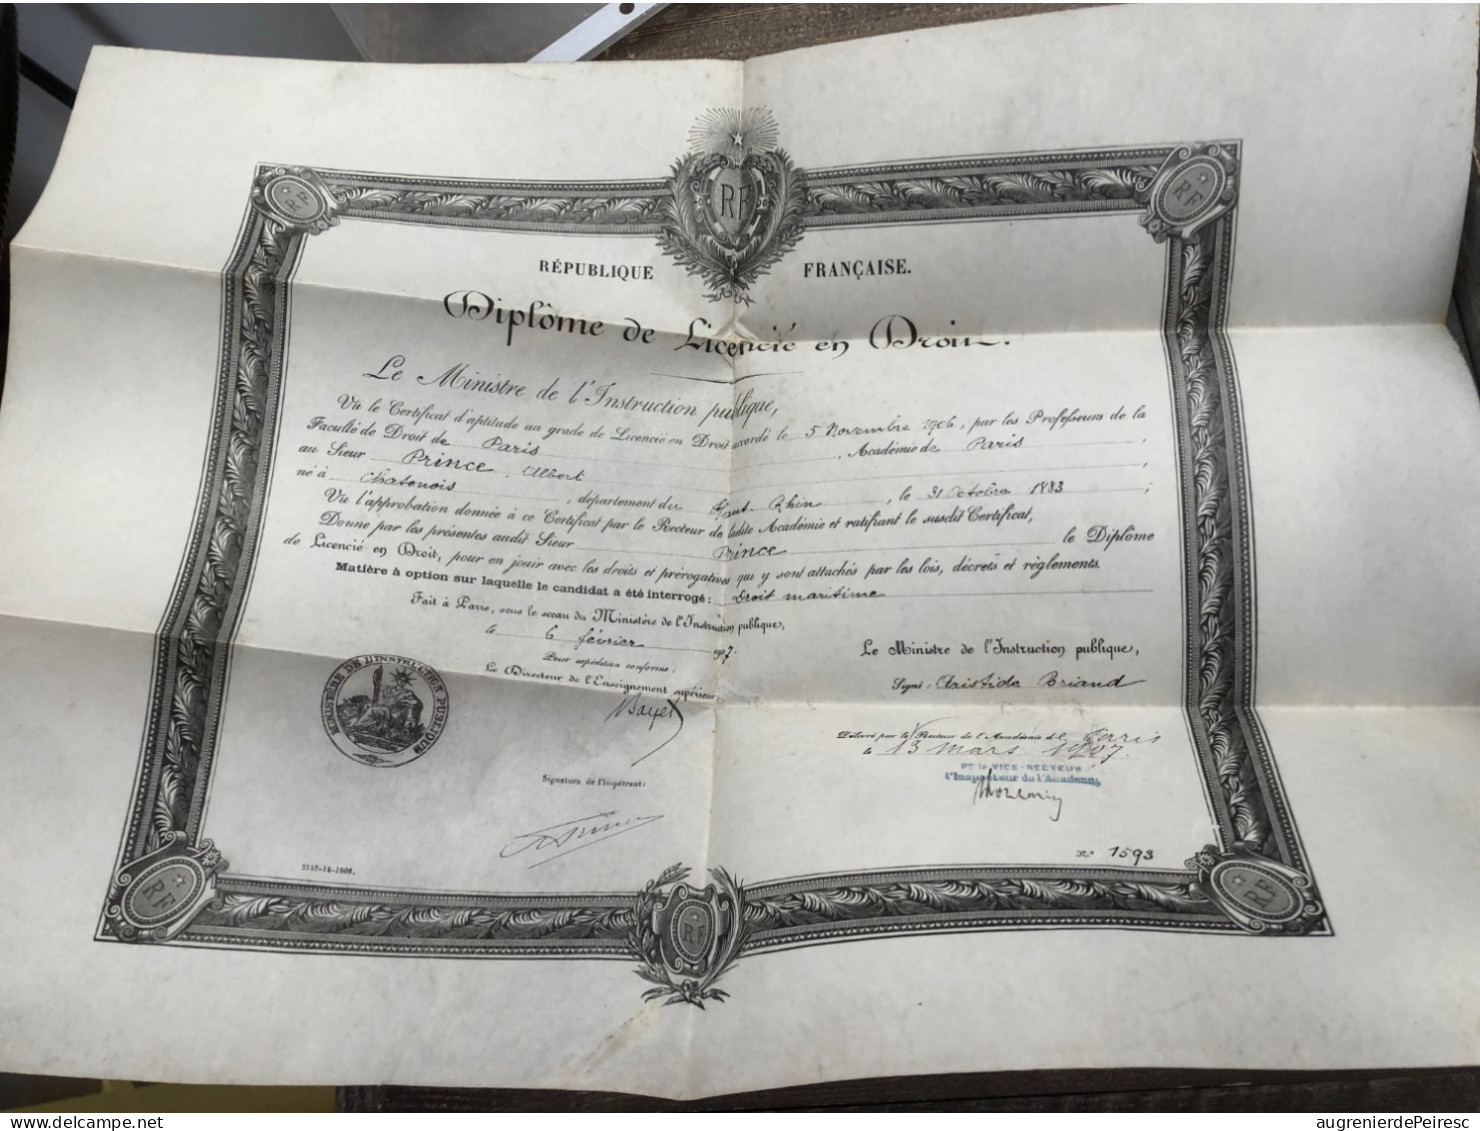 RF
RF
RF
RÉPUBLIQUE FRANÇAISE.
Diplôme de Licencié en Droit.
Le Ministre de l'Instruction publique,
Vu le Certificat d'aptitude au grade de Licencié en Droit accordé le 5 Novembre 1906, par les Professeurs de la
Faculté de Droit de Paris, Académie de Paris,
au Sieur Prince, Albert,
né à Chatenois, département du Haut-Rhin, le 31 Octobre 1883;
Vu l'approbation donnée à ce Certificat par le Recteur de ladite Académie et ratifiant le susdit Certificat,
Donne par les présentes audit Sieur Prince le Diplôme
de Licencié en Droit, pour en jouir avec les droits et prérogatives qui y sont attachés par les lois, décrets et règlements.
Matière à option sur laquelle le candidat a été interrogé: Droit maritime
Fait à Paris, sous le sceau du Ministère de l'Instruction publique,
le 6 février 1907.
Pour expédition conforme:
Le Directeur de l'Enseignement supérieur,
Bayet
MINISTÈRE DE L'INSTRUCTION PUBLIQUE
Le Ministre de l'Instruction publique,
Signé: Aristide Briand
Délivré par le Recteur de l'Académie de Paris
le 13 mars 1907.
Pr le VICE-RECTEUR
l'Inspecteur de l'Académie,
Signature de l'Impétrant:
N° 1593
RF
RF
RF
delcampe.net
augrenierdePeiresc